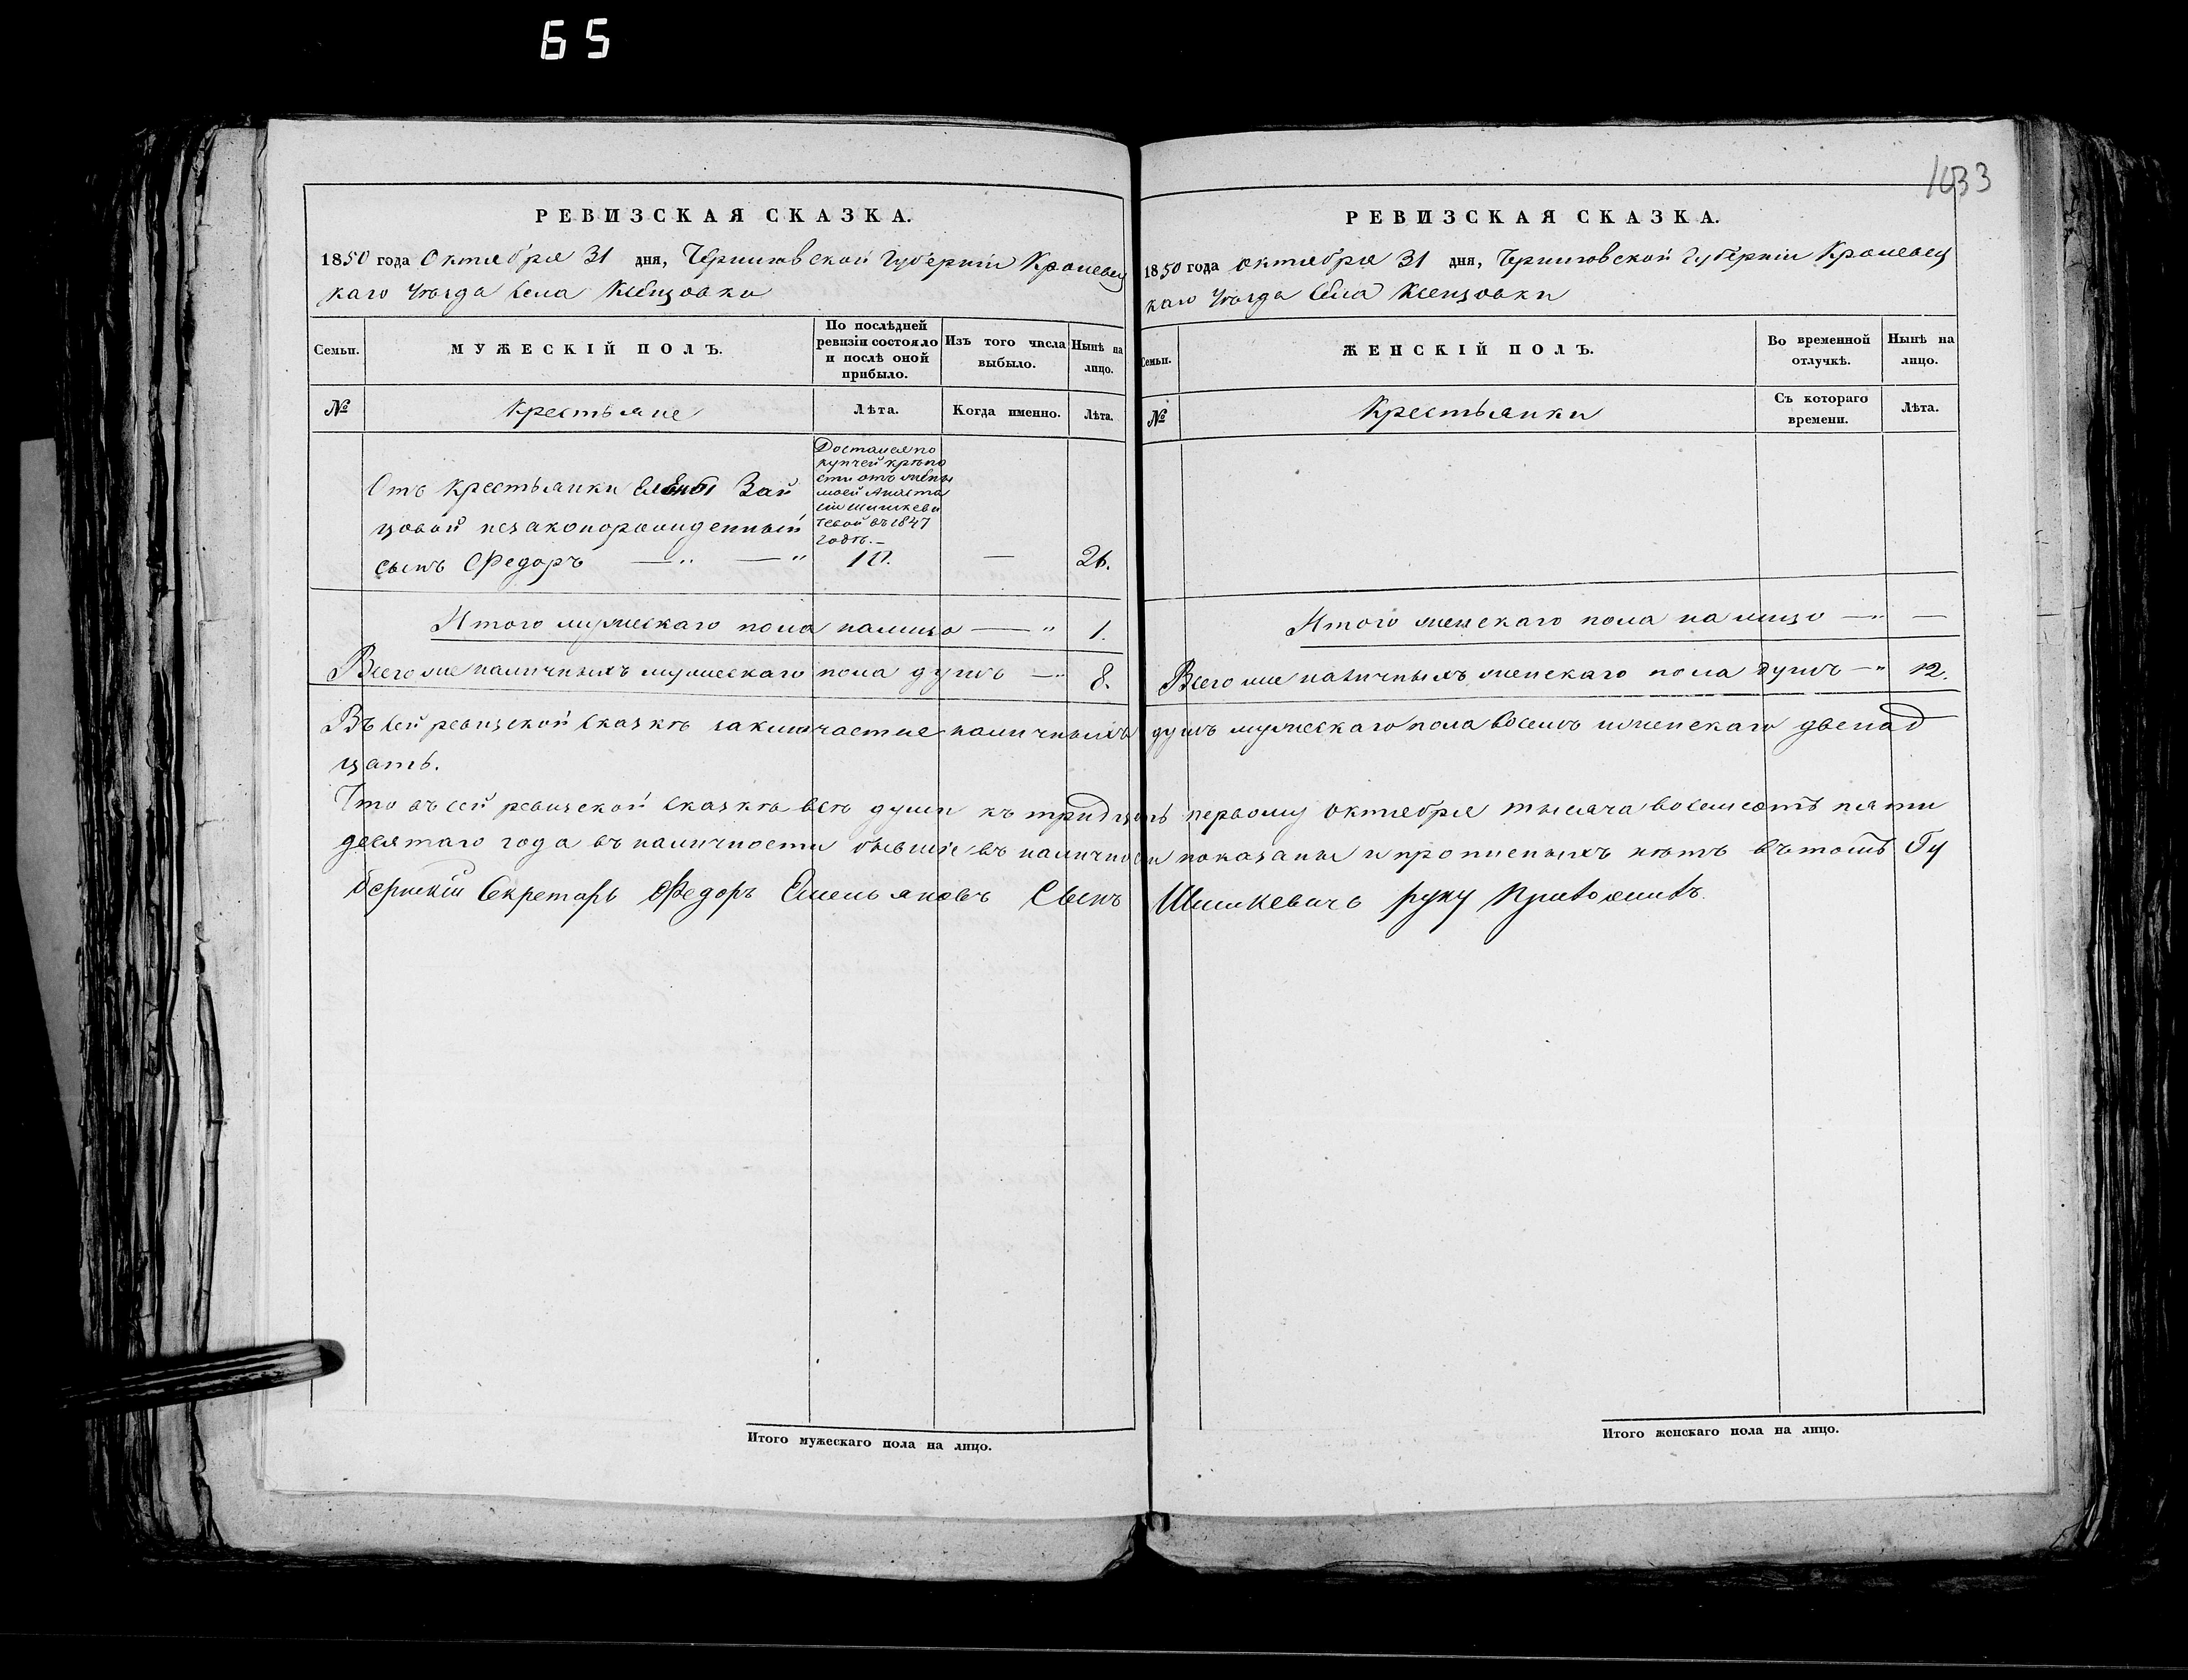 65
1033
РЕВИЗСКАЯ СКАЗКА.
1850 года Октября 31 дня, Черниговской Губерніи Кролевец
каго Уѣзда Села
МУЖЕСКІЙ ПОЛЪ.
Семьи.
По послѣдней
ревизіи состояло
и послѣ оной
прибыло.
Изъ того числа
выбыло.
Нынѣ на
лицо.
№
Крестьяне
Лѣта.
Когда именно.
Лѣта.
Достался по
купчей крѣпо
сти отъ жены
моей Анаста
сіи Шишкеви
чевой въ 1847
годѣ.—
Отъ крестьянки Елены Зай
цовой незаконорожденный
сынъ Федоръ — „ — „ 10. — 26.
Итого мужескаго пола налицо — „ 1.
Всего же наличныхъ мужескаго пола душъ — „ 8.
РЕВИЗСКАЯ СКАЗКА.
1850 года Октября 31 дня, Черниговской Губерніи Кролевец
каго Уѣзда Села
Семьи.
ЖЕНСКІЙ ПОЛЪ.
Во временной
отлучкѣ.
Нынѣ на
лицо.
№
Крестьянки
Съ котораго
времени.
Лѣта.
Итого женскаго пола на лицо — „ —
Всего же наличныхъ женскаго пола душъ — „ 12.
Въ сей ревизской сказкѣ заключается наличныхъ душъ мужескаго пола восемь и женскаго двенад
цать.
Что въ сей ревизской сказкѣ всѣ души къ тридцать первому октября тысяча восемсотъ пяти
десятаго года въ наличности бывшіе въ наличности показаны и прописныхъ нѣтъ въ томъ Гу
бернскій Секретарь Федоръ Емельяновъ Сынъ Шишкевичъ руку приложилъ.
Итого мужескаго пола на лицо.
Итого женскаго пола на лицо.